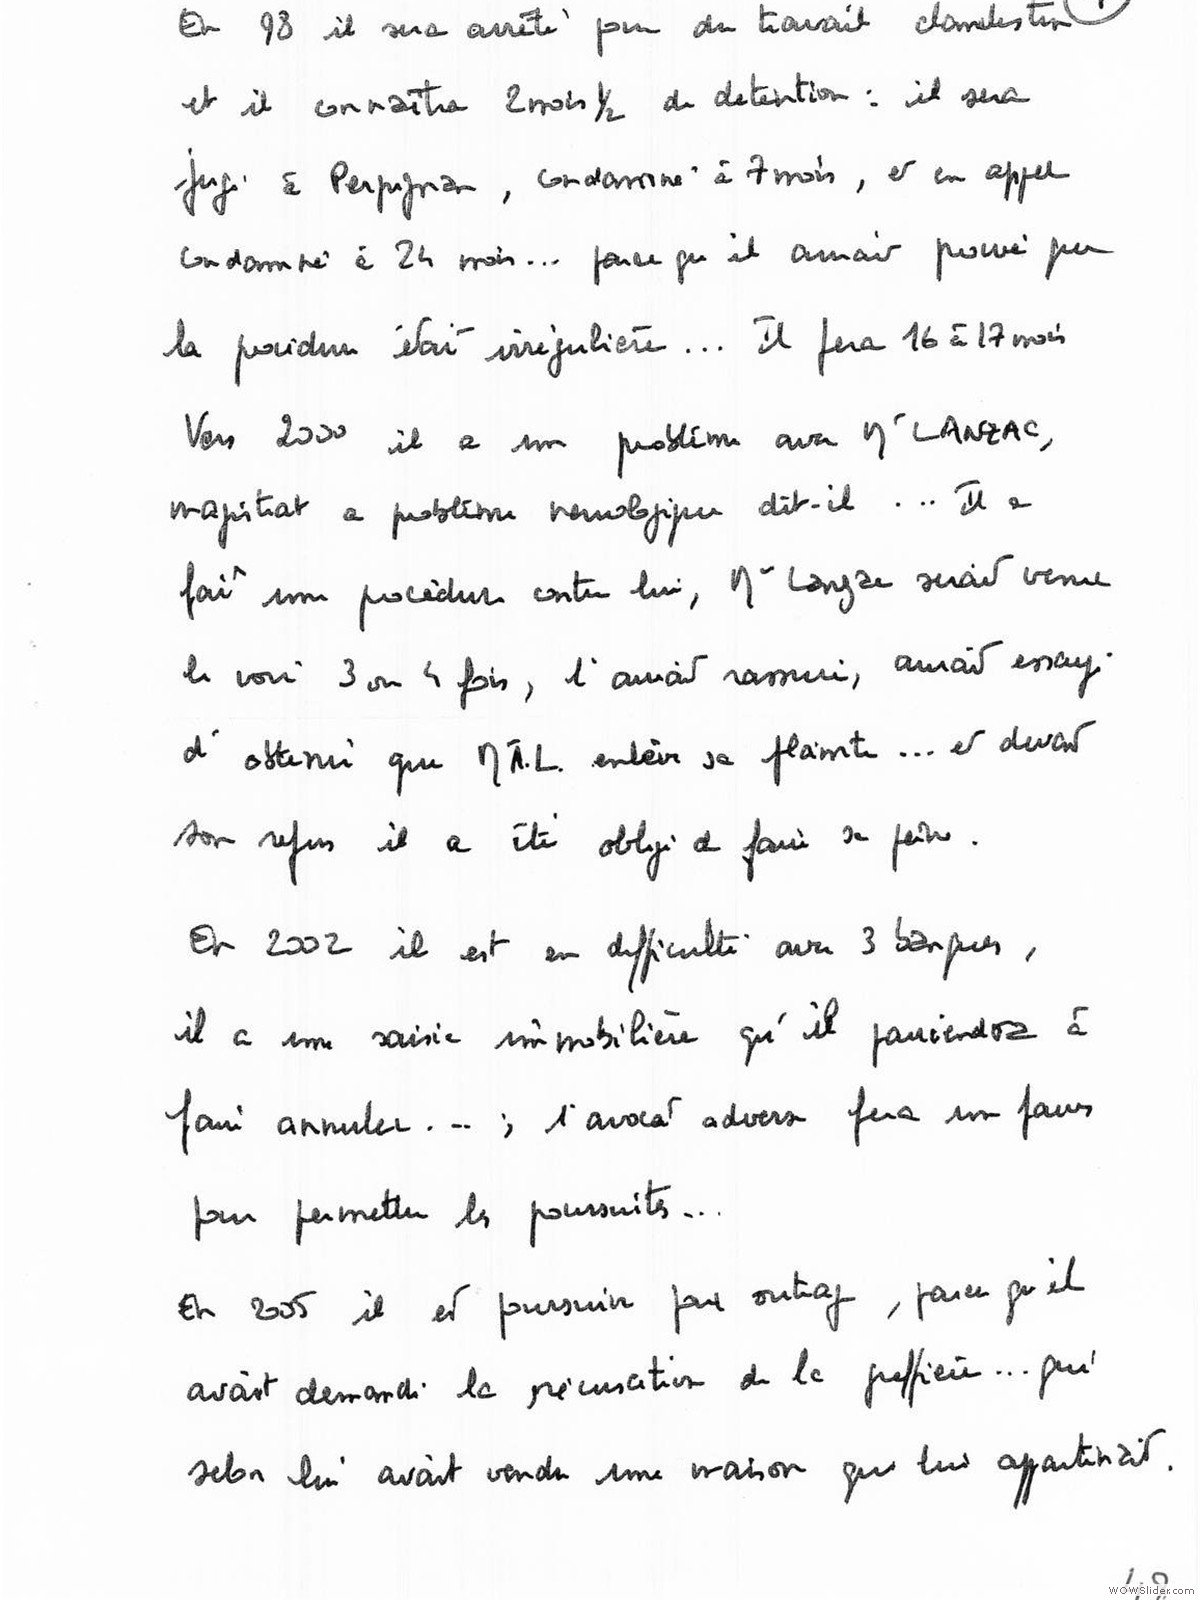 En 98 il sera arrêté pour du travail clandestin
et il connaîtra 2 mois 1/2 de détention : il sera
jugé à Perpignan, condamné à 7 mois, et en appel
condamné à 24 mois... parce qu'il aurait prouvé que
la procédure était irrégulière... Il fera 16 à 17 mois
Vers 2000 il a un problème avec Mr LANZAC,
magistrat a problème neurologique dit-il ... Il a
fait une procédure contre lui, Mr Lanzac serait venu
le voir 3 ou 4 fois, l'aurait rassuré, aurait essayé
d'obtenir que M A.L. enlève sa plainte ... et devant
son refus il a été obligé de faire sa peine.
En 2002 il est en difficulté avec 3 banques,
il a une saisie immobilière qu'il parviendra à
faire annuler... ; l'avocat adverse fera un faux
pour permettre les poursuites...
En 2005 il est poursuivi par outrage, parce qu'il
avait demandé la récusation de la greffière... qui
selon lui avait vendu une maison qui lui appartenait.
48
WOWSlider.com